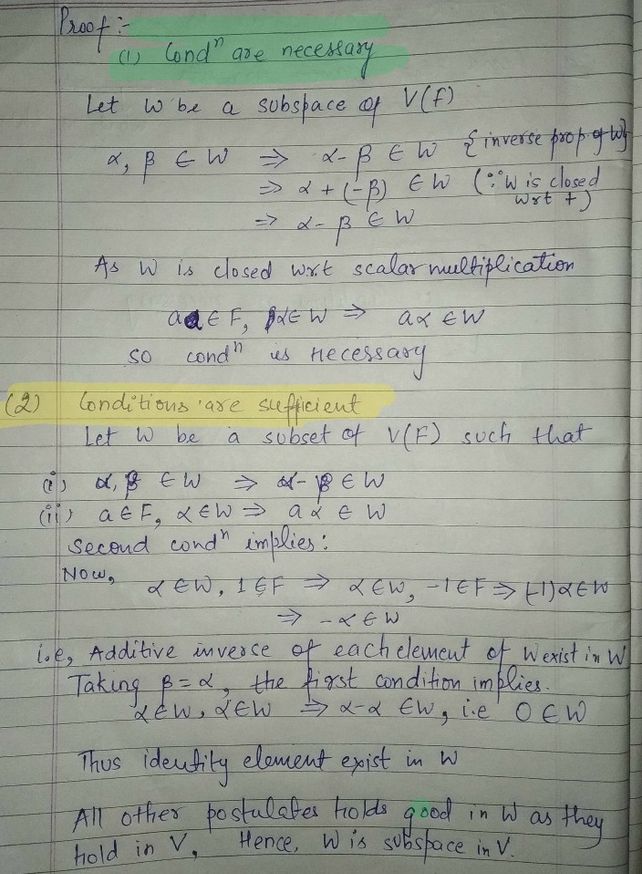 Proof :-
(1) Condⁿ are necessary
Let W be a subspace of V(F)
α, β ∈ W ⇒ α-β ∈ W {inverse prop of W}
⇒ α + (-β) ∈ W (∵ W is closed wrt +)
⇒ α-β ∈ W
As W is closed w.r.t scalar multiplication
a ∈ F, α ∈ W ⇒ aα ∈ W
so condⁿ is necessary
(2) Conditions are sufficient
Let W be a subset of V(F) such that
(i) α, β ∈ W ⇒ α-β ∈ W
(ii) a ∈ F, α ∈ W ⇒ aα ∈ W
Second condⁿ implies:
Now, α ∈ W, 1 ∈ F ⇒ α ∈ W, -1 ∈ F ⇒ (-1)α ∈ W
⇒ -α ∈ W
i.e, Additive inverse of each element of W exist in W
Taking β = α, the first condition implies.
α ∈ W, α ∈ W ⇒ α-α ∈ W, i.e 0 ∈ W
Thus identity element exist in W
All other postulates holds good in W as they
hold in V. Hence, W is subspace in V.